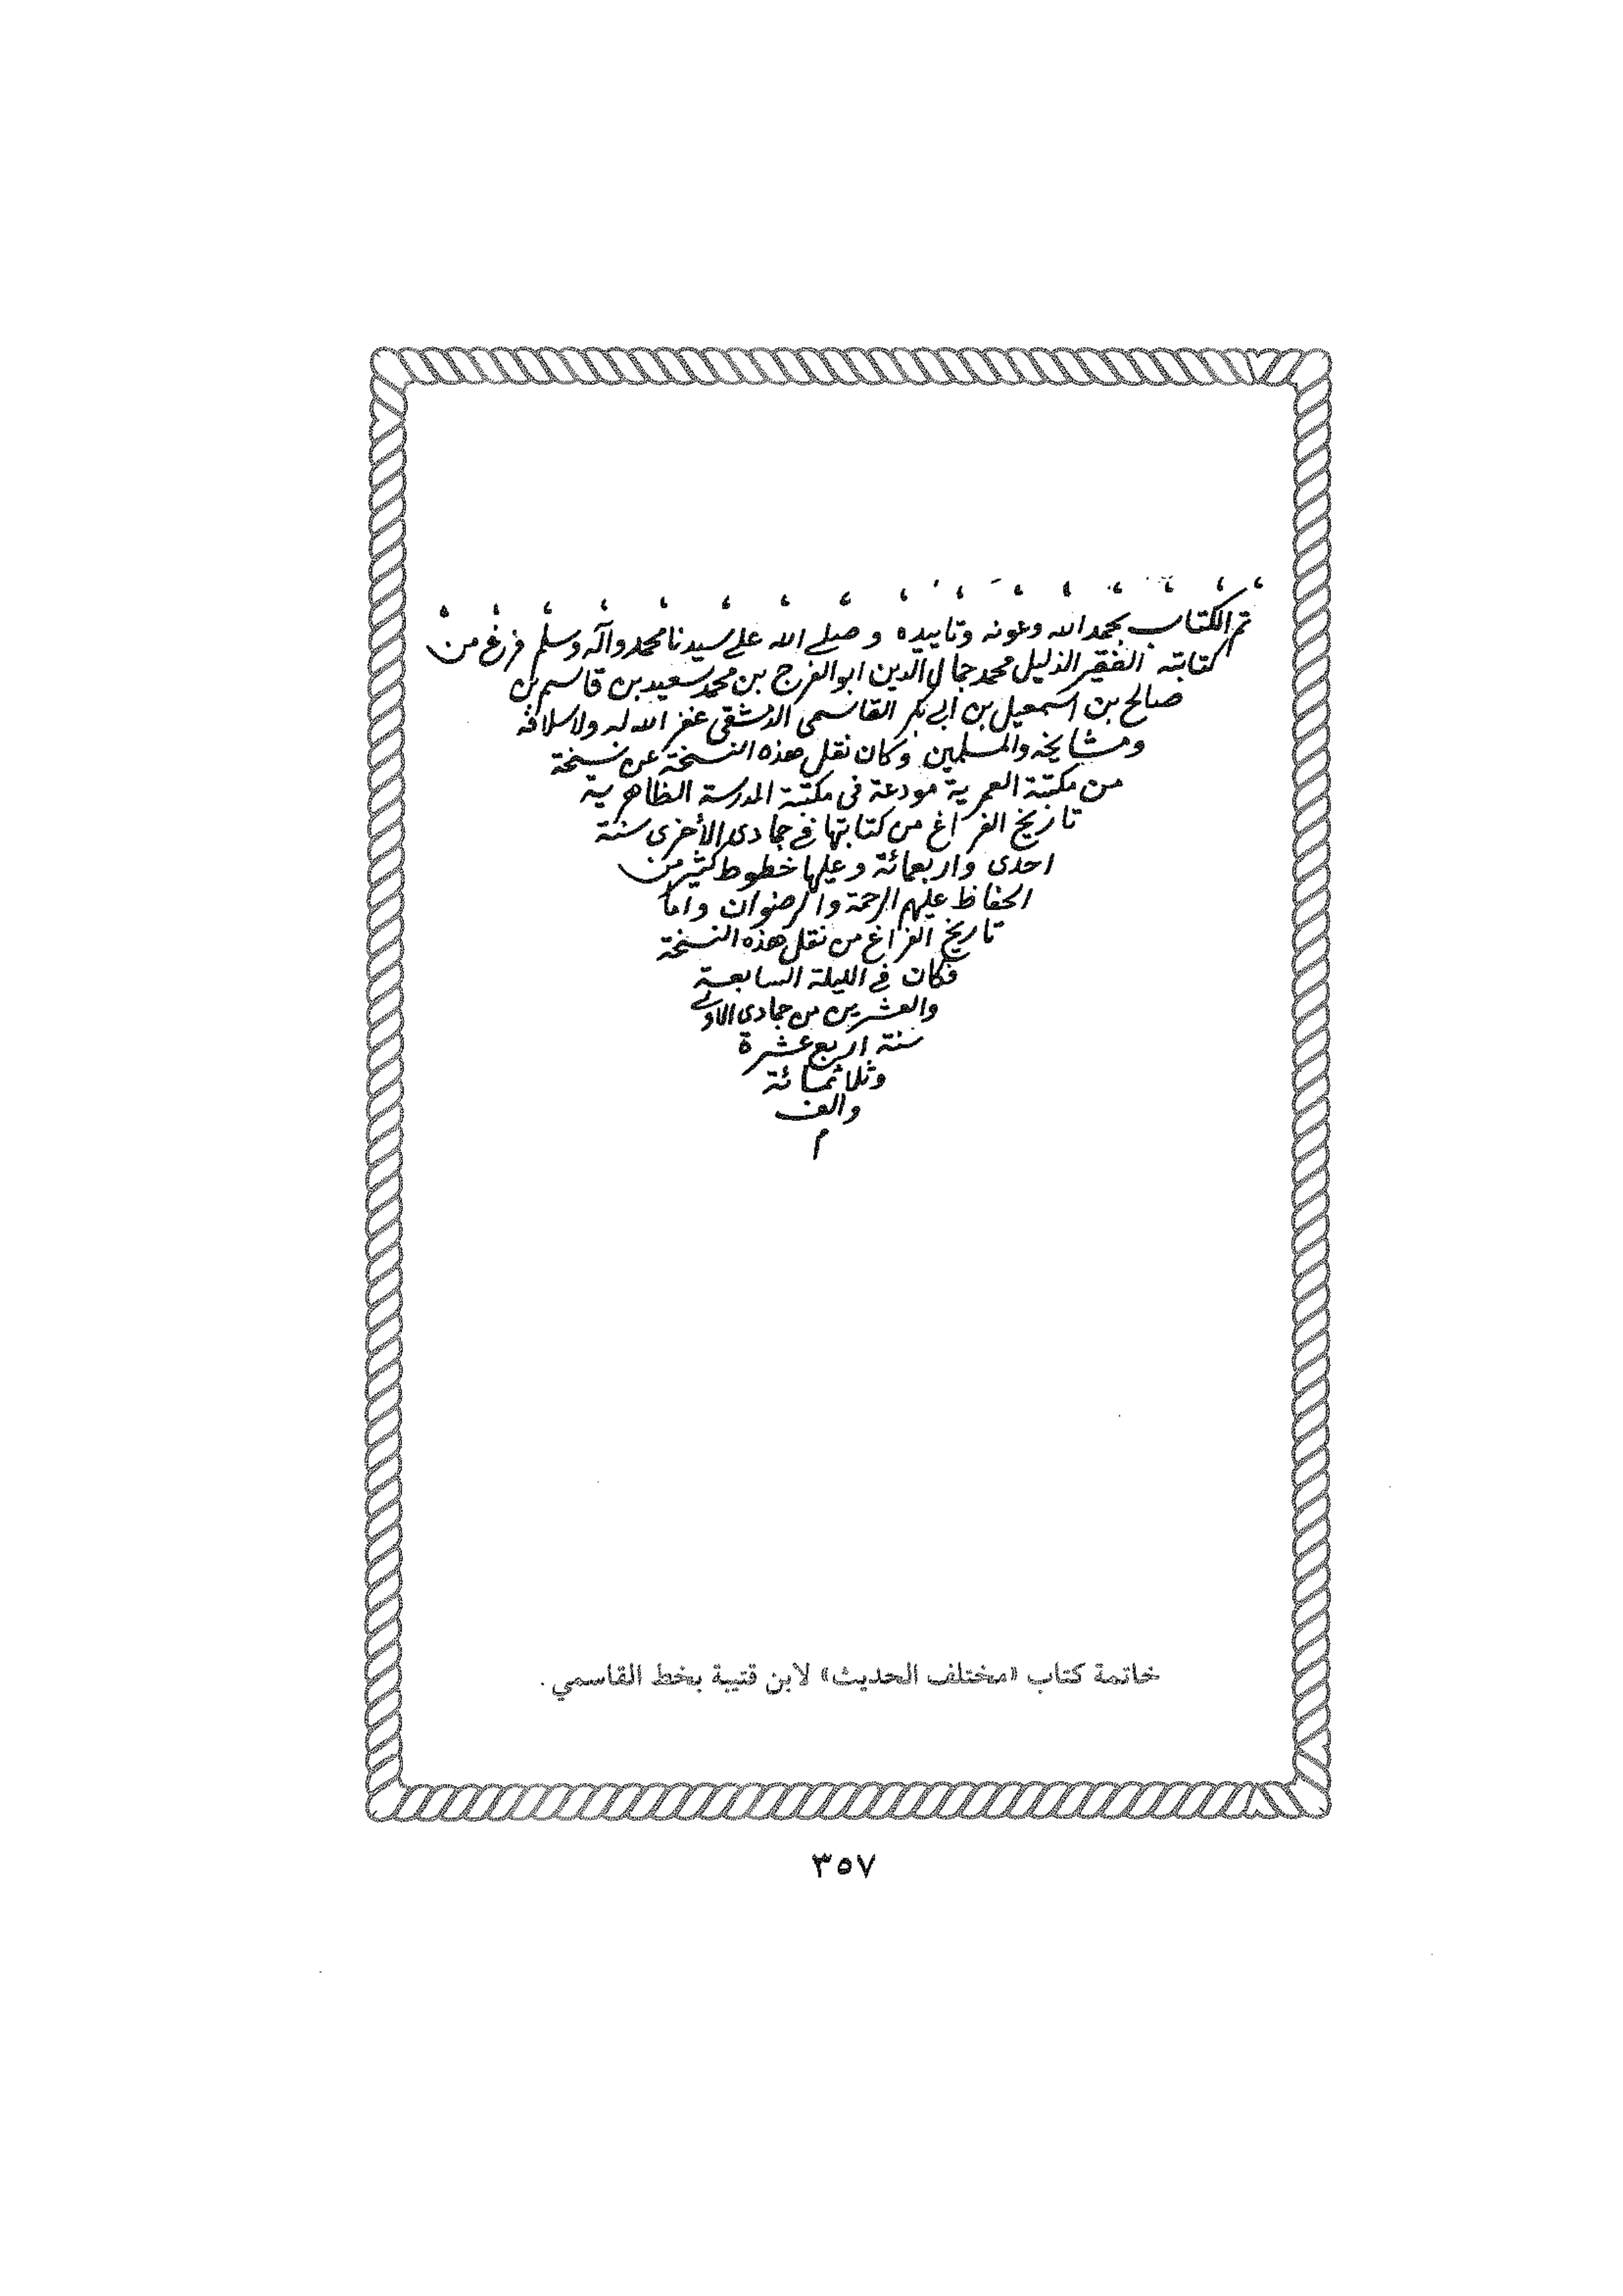 تم الكتاب بحمد الله وعونه وتاييده وصلى الله على سيدنا محمد وآله وسلم فرغ من
كتابته الفقير الذليل محمد جمال الدين ابو الفرج بن محمد سعيد بن قاسم بن
صالح بن اسمعيل بن ابي بكر القاسمي الدمشقي غفر الله له ولاسلافه
ومشايخه والمسلمين وكان نقل هذه النسخة عن نسخة
من مكتبة العمرية مودعة في مكتبة المدرسة الظاهرية
تاريخ الفراغ من كتابتها في جمادى الأخرى سنة
احدى واربعمائة وعليها خطوط كثير من
الحفاظ عليهم الرحمة والرضوان واما
تاريخ الفراغ من نقل هذه النسخة
فكان في الليلة السابعة
والعشرين من جمادى الاولى
سنة اربع عشرة
وثلاثمائة
والف
م
خاتمة كتاب «مختلف الحديث» لابن قتيبة بخط القاسمي.
٣٥٧